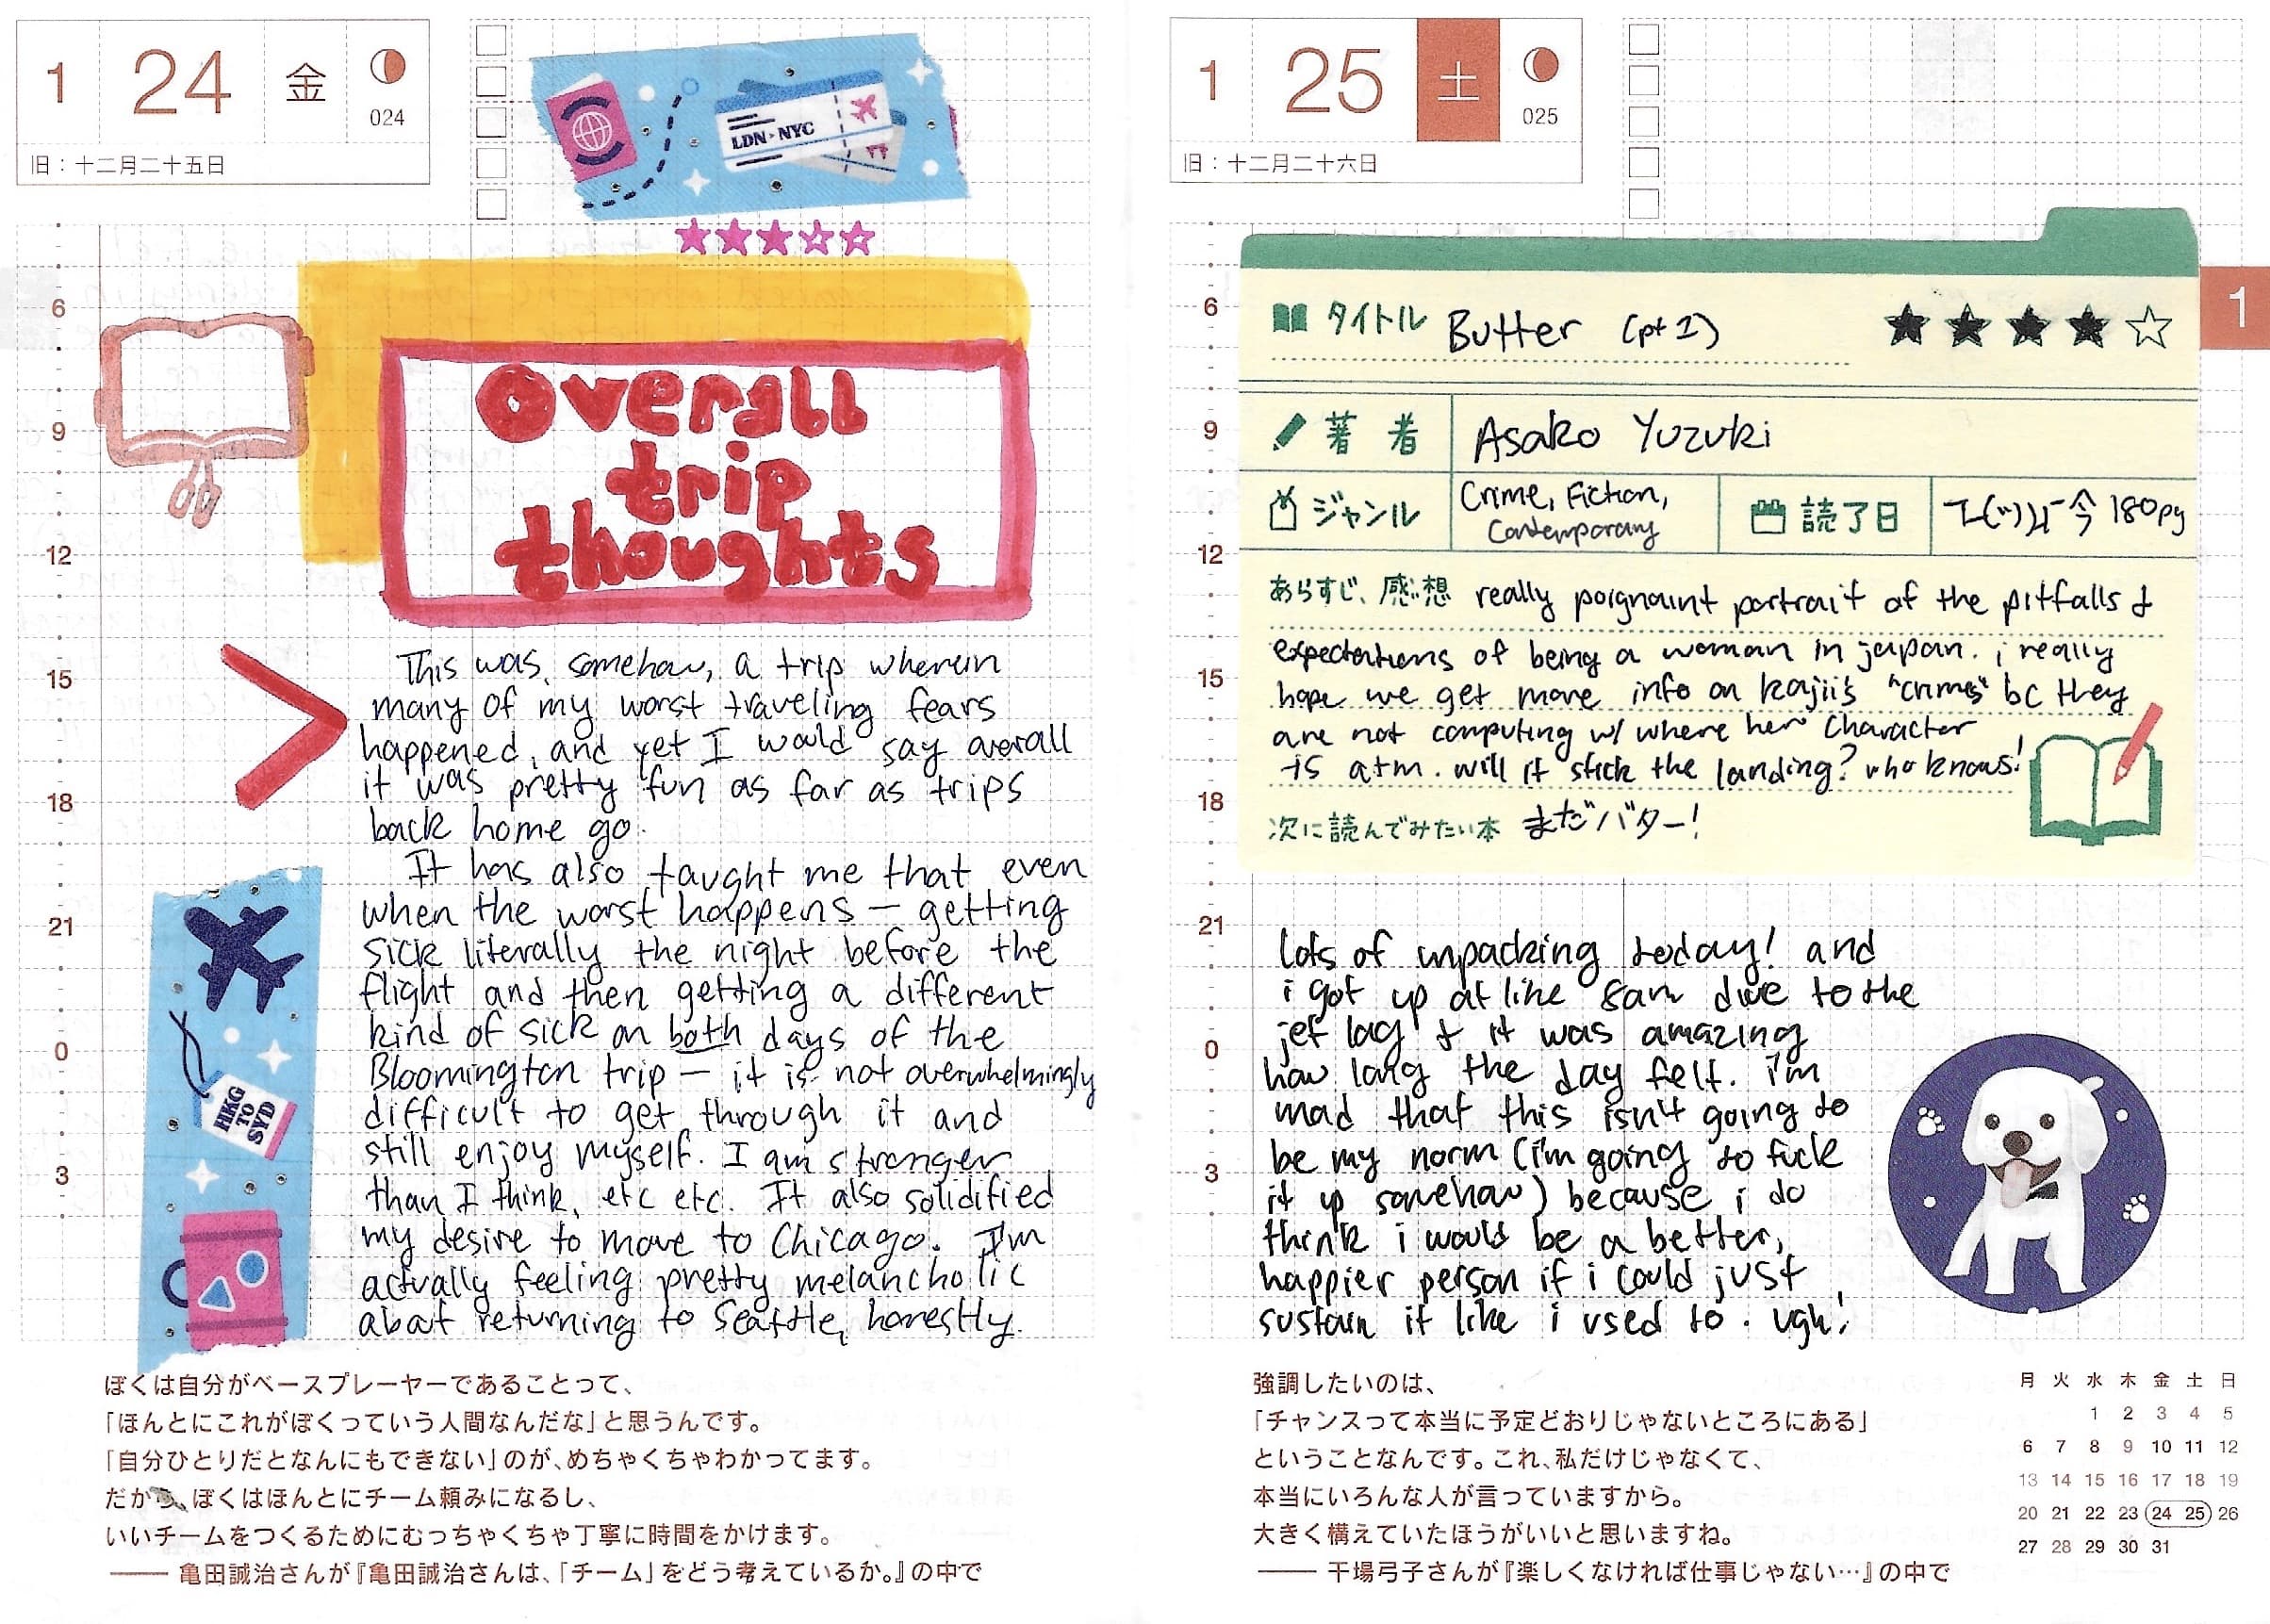 1 24 金 024
旧：十二月二十五日
LDN-NYC
6
9
12
15
18
21
0
3
overall
trip
thoughts
This was, somehow, a trip wherein
many of my worst traveling fears
happened, and yet I would say overall
it was pretty fun as far as trips
back home go.
It has also taught me that even
when the worst happens — getting
sick literally the night before the
flight and then getting a different
kind of sick on both days of the
Bloomington trip — it is not overwhelmingly
difficult to get through it and
still enjoy myself. I am stronger
than I think, etc etc. It also solidified
my desire to move to Chicago. I'm
actually feeling pretty melancholic
about returning to Seattle, honestly.
HKG
TO
SYD
ぼくは自分がベースプレーヤーであることって、
「ほんとにこれがぼくっていう人間なんだな」と思うんです。
「自分ひとりだとなんにもできない」のが、めちゃくちゃわかってます。
だから、ぼくはほんとにチーム頼みになるし、
いいチームをつくるためにむっちゃくちゃ丁寧に時間をかけます。
—— 亀田誠治さんが『亀田誠治さんは、「チーム」をどう考えているか。』の中で
1 25 土 025
旧：十二月二十六日
1
6
9
12
15
18
21
0
3
タイトル Butter (pt 1)
著者 Asako Yuzuki
ジャンル Crime, Fiction,
Contemporary
読了日 今 180pg
あらすじ、感想 really poignaint portrait of the pitfalls &
expectations of being a woman in japan. i really
hope we get more info on kajii's "crimes" bc they
are not computing w/ where her character
is atm. will it stick the landing? who knows!
次に読んでみたい本 まだバター！
lots of unpacking today! and
i got up at like 8am due to the
jet lag & it was amazing
how long the day felt. i'm
mad that this isn't going to
be my norm (i'm going to fuck
it up somehow) because i do
think i would be a better,
happier person if i could just
sustain it like i used to. ugh!
強調したいのは、
「チャンスって本当に予定どおりじゃないところにある」
ということなんです。これ、私だけじゃなくて、
本当にいろんな人が言っていますから。
大きく構えていたほうがいいと思いますね。
—— 干場弓子さんが『楽しくなければ仕事じゃない…』の中で
月 火 水 木 金 土 日
1 2 3 4 5
6 7 8 9 10 11 12
13 14 15 16 17 18 19
20 21 22 23 24 25 26
27 28 29 30 31